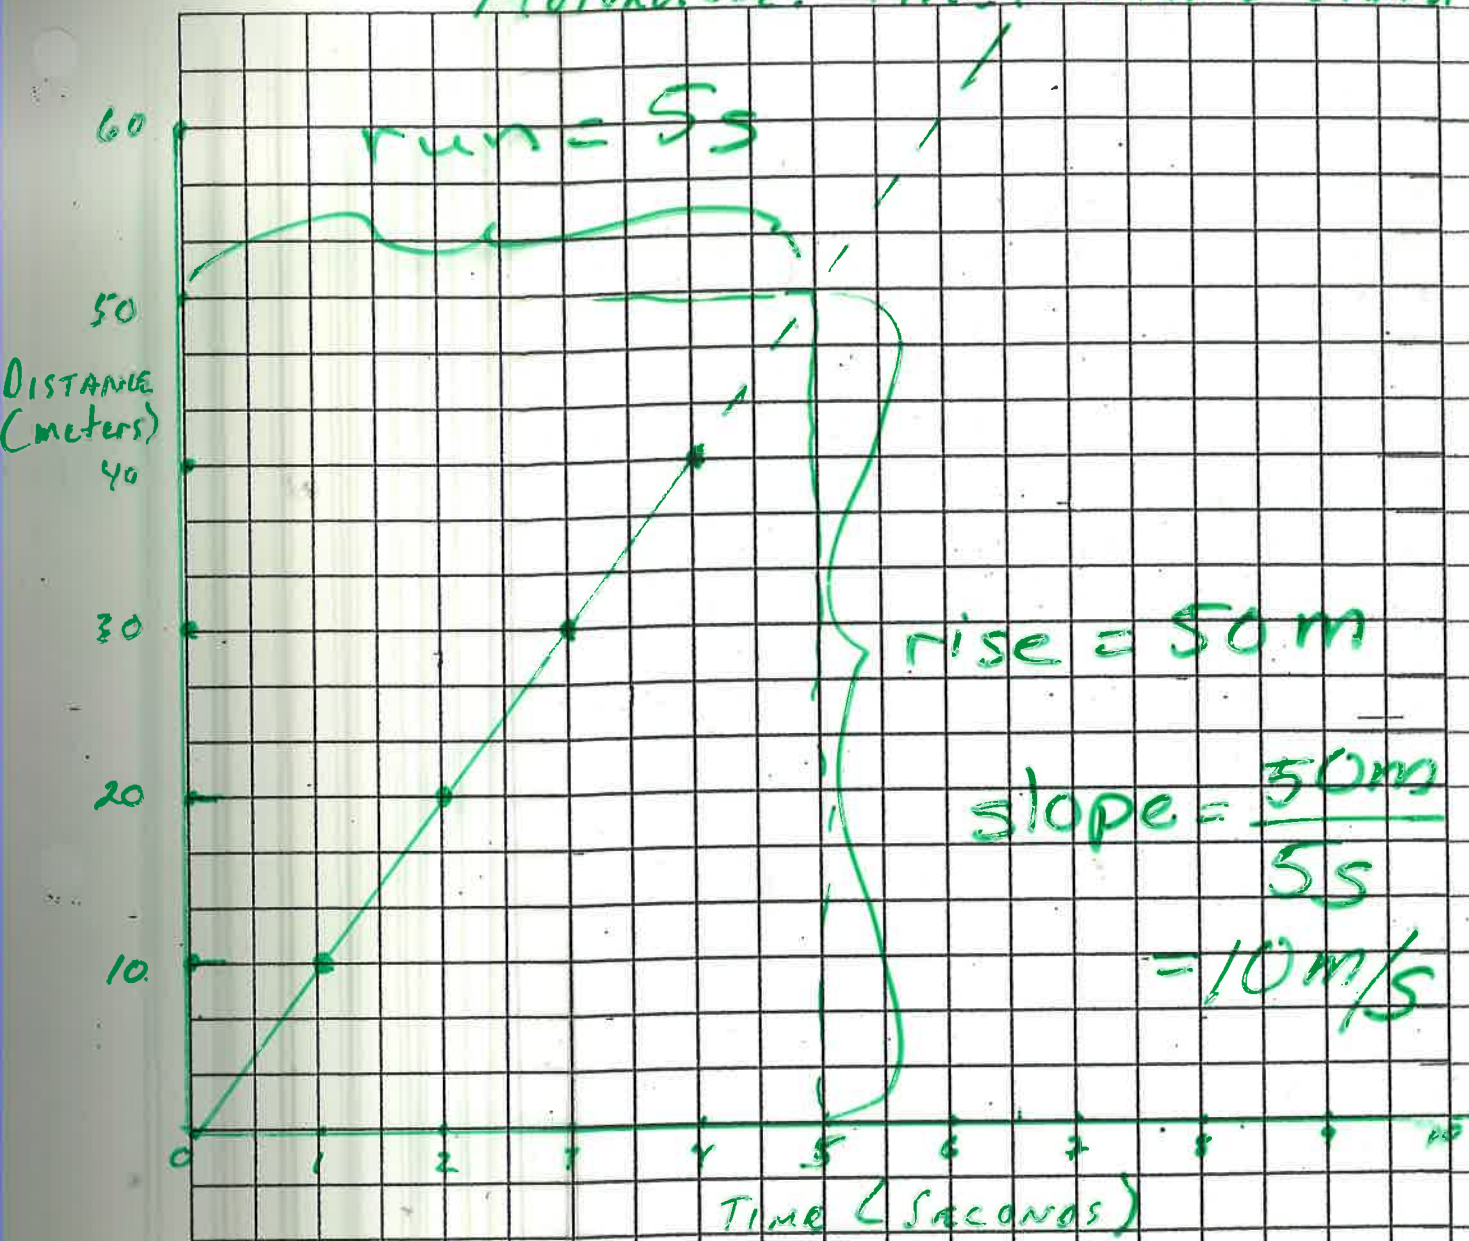 60
run = 5s
50
DISTANCE
(meters)
40
30
rise = 50m
20
slope = 50m
5s
10
= 10 m/s
0 1 2 3 4 5 6 7 8 9 10
TIME (SECONDS)